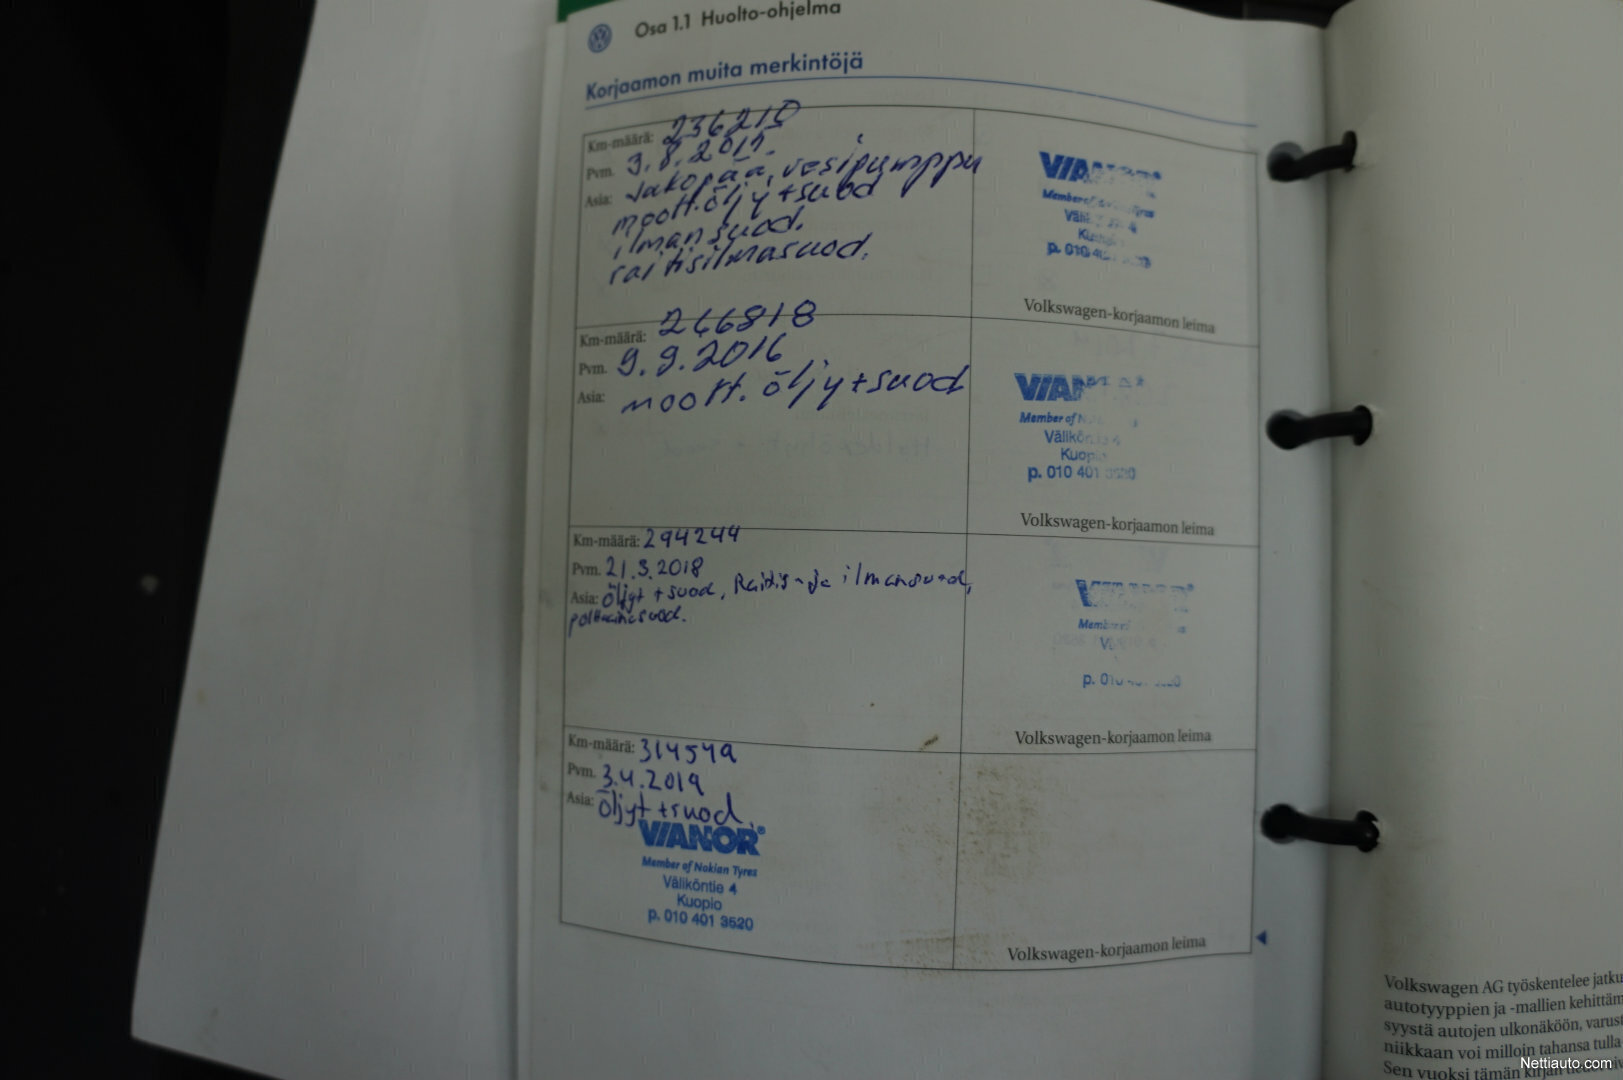 Osa 1.1 Huolto-ohjelma
Korjaamon muita merkintöjä
Km-määrä: 236210
Pvm. 9.8.2015.
Asia: Jakopää, vesipumppu
moott.öljy+suod
ilmansuod.
raitisilmasuod.
VIANOR
Member of Tyres
p. 010 40
Volkswagen-korjaamon leima
Km-määrä: 266818
Pvm. 9.9.2016
Asia: moott. öljy+suod
VIANOR
Member of
Väliköntie 4
Kuopio
p. 010 401 3520
Volkswagen-korjaamon leima
Km-määrä: 294244
Pvm. 21.3.2018
Asia: öljyt + suod, Raitis- ja ilmansuod,
polttoainesuod.
Member
Volkswagen-korjaamon leima
Km-määrä: 314549
Pvm. 3.4.2019
Asia: öljyt +suod.
VIANOR®
Member of Nokian Tyres
Väliköntie 4
Kuopio
p. 010 401 3520
Volkswagen-korjaamon leima
Volkswagen AG työskentelee jatku
autotyyppien ja -mallien kehittäm
syystä autojen ulkonäköön, varust
niikkaan voi milloin tahansa tulla
Sen vuoksi tämän kirjan
Nettiauto.com